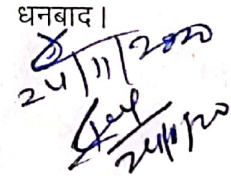 धनबाद।
24/11/2020
24/11/20